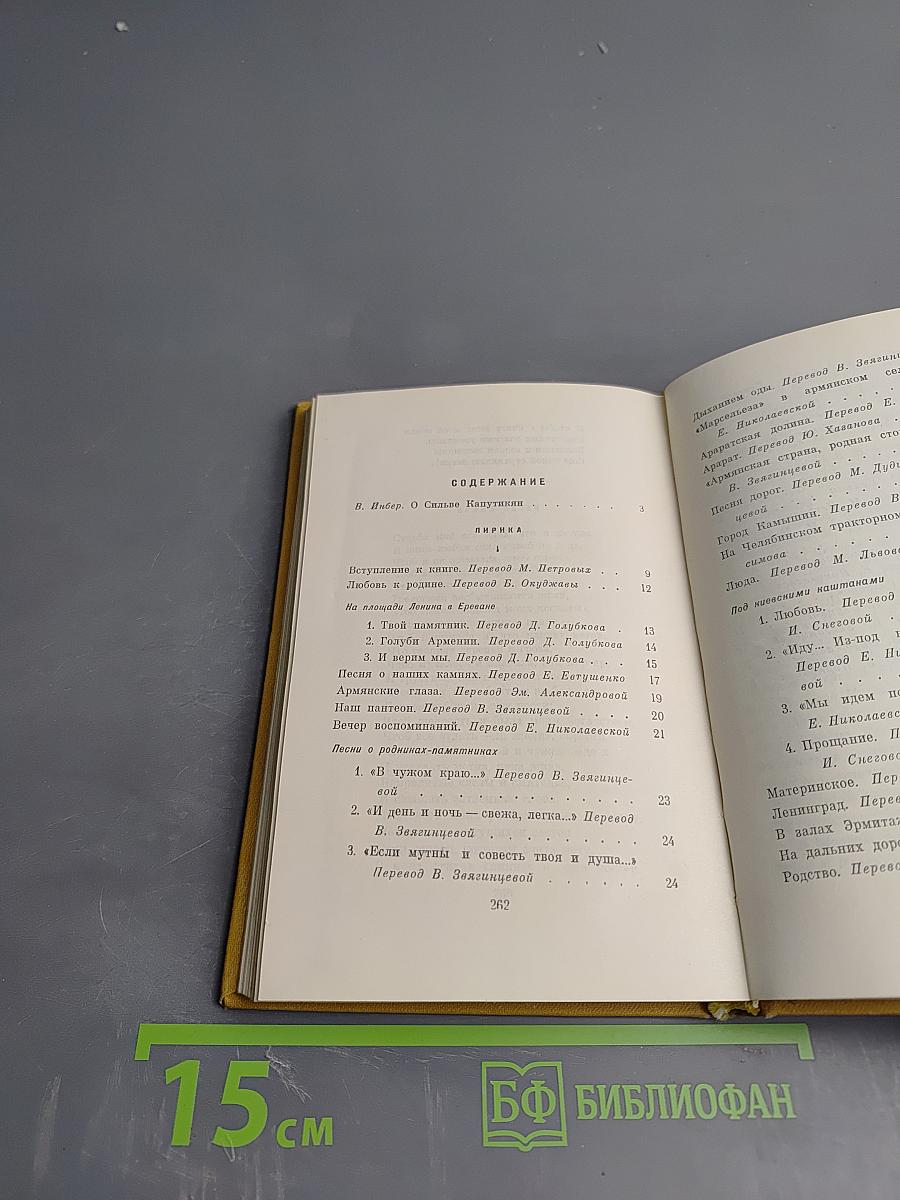 СОДЕРЖАНИЕ
В. Инбер. О Сильве Капутикян . . . . . . . 3
ЛИРИКА
1
Вступление к книге. Перевод М. Петровых . . 9
Любовь к родине. Перевод Б. Окуджавы . . . 12
На площади Ленина в Ереване
1. Твой памятник. Перевод Д. Голубкова . 13
2. Голуби Армении. Перевод Д. Голубкова 14
3. И верим мы. Перевод Д. Голубкова . . . 15
Песня о наших камнях. Перевод Е. Евтушенко 17
Армянские глаза. Перевод Эм. Александровой 19
Наш пантеон. Перевод В. Звягинцевой . . . . 20
Вечер воспоминаний. Перевод Е. Николаевской 21
Песни о родниках-памятниках
1. «В чужом краю...» Перевод В. Звягинце-
вой . . . . . . . . . . . . . 23
2. «И день и ночь — свежа, легка...» Перевод
В. Звягинцевой . . . . . . . . . 24
3. «Если мутны и совесть твоя и душа...»
Перевод В. Звягинцевой . . . . . . 24
262
Дыханием оды. Перевод В. Звягинц
«Марсельеза» в армянском сел
Е. Николаевской . . . . .
Араратская долина. Перевод Е.
Арарат. Перевод Ю. Хазанова .
«Армянская страна, родная сто
В. Звягинцевой . . . . .
Песня дорог. Перевод М. Дуди
цевой . . . . . . .
Город Камышин. Перевод В
На Челябинском тракторном
симова . . . . . . .
Люда. Перевод М. Львов
Под киевскими каштанами
1. Любовь. Перевод
И. Снеговой .
2. «Иду... Из-под
Перевод Е. Ни
вой . . . .
3. «Мы идем по
Е. Николаевс
4. Прощание. П
И. Снегово
Материнское. Пер
Ленинград. Перев
В залах Эрмитаж
На дальних доро
Родство. Перево
15 см
БФ БИБЛИОФАН